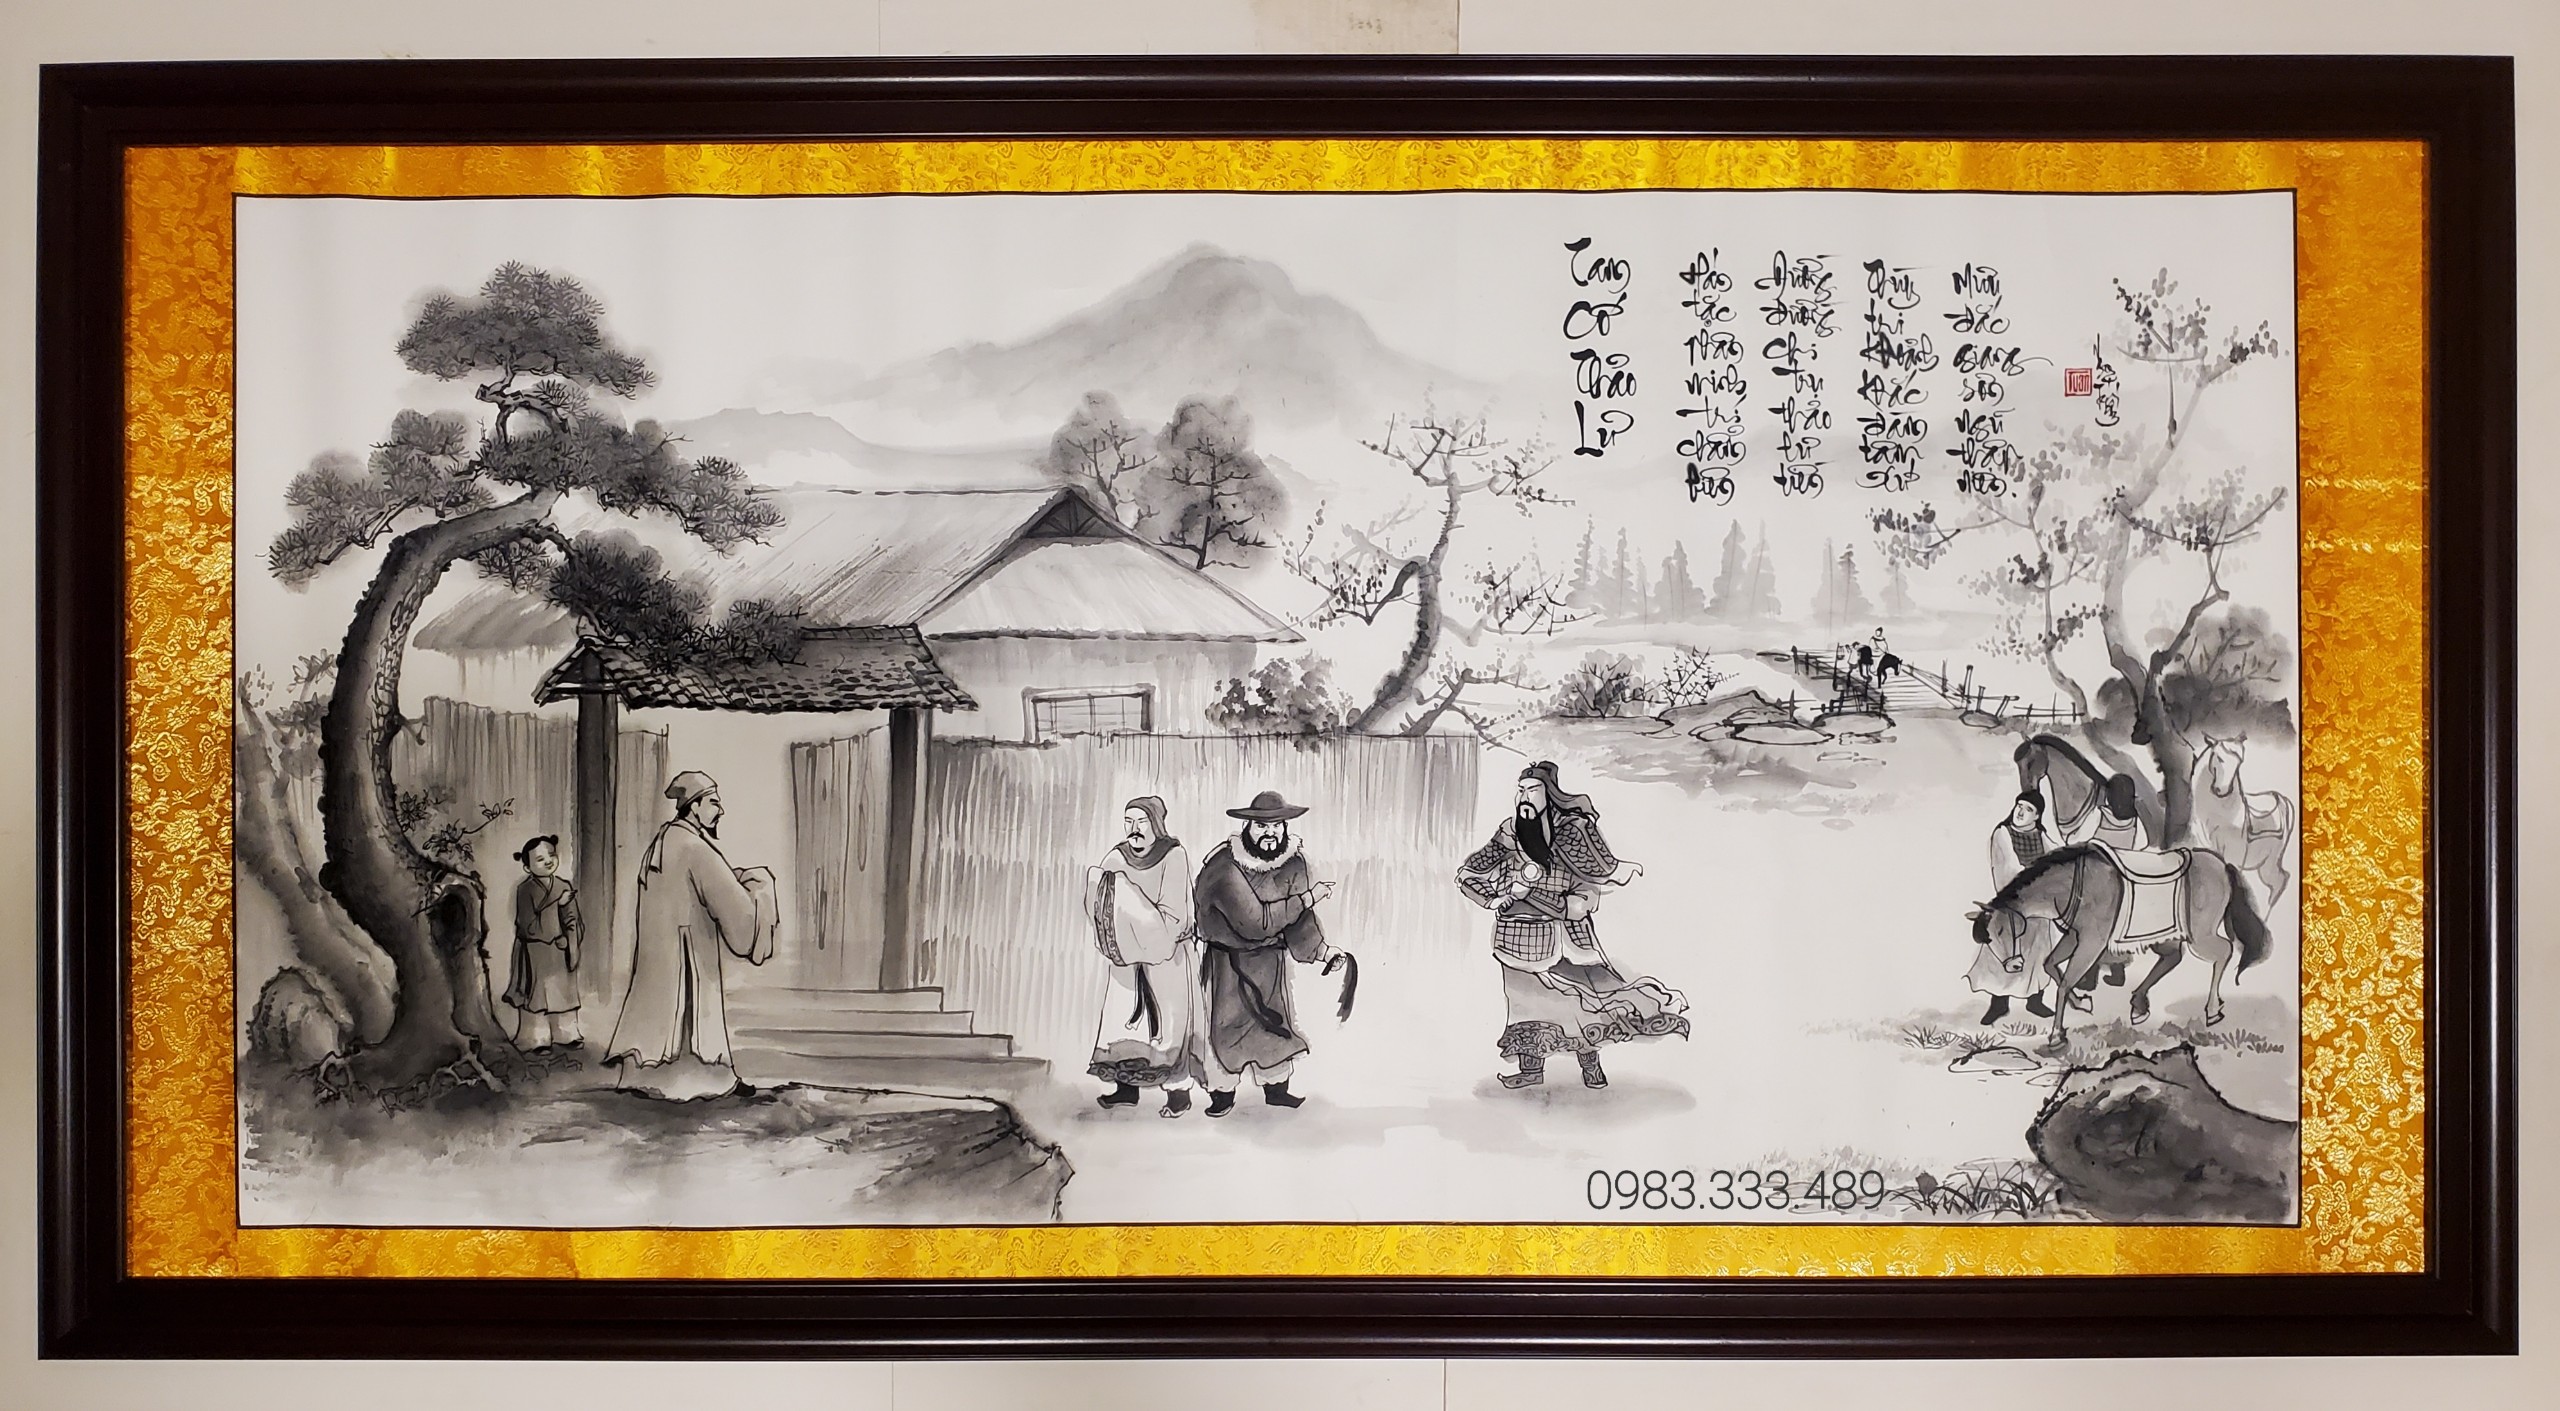 Tam Cố Thảo Lư
Hán tặc minh trí
Đường đường chi trụ thảo lư tiền
Thùy tri khoảnh khắc đàm tâm sự
Mưu đắc giang sơn ngũ thập niên.
Tuấn
0983.333.489